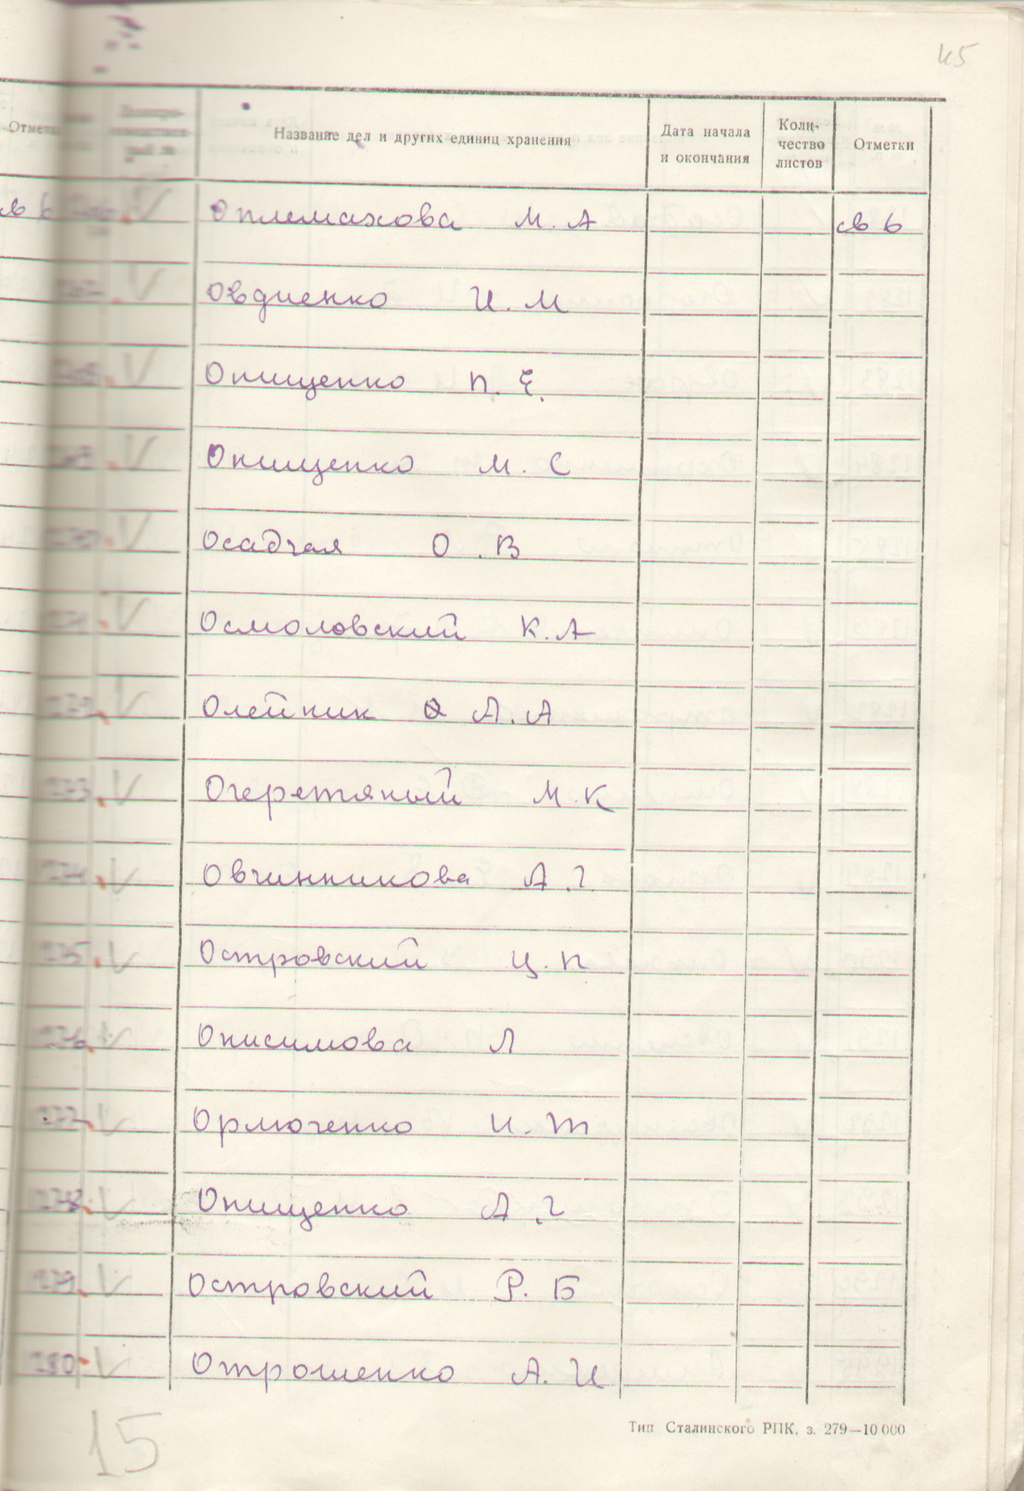 45
Отметки
Название дел и других единиц хранения
Дата начала и окончания
Коли-чество листов
Отметки
св 6
Оплемахова М. А св 6
Овдиенко И. М
Онищенко П. Е.
Онищенко М. С
Осадчая О. В
Осмоловский К. А
Олейник А. А
Очеретяный М. К
Овчинникова А. Г
275 Островский Ц. П
276 Онисимова Л
277 Ормоченко И. Т
278 Онищенко А. Г
279 Островский Р. Б
280 Отрошенко А. И
Тип Сталинского РПК, з. 279—10 000
15